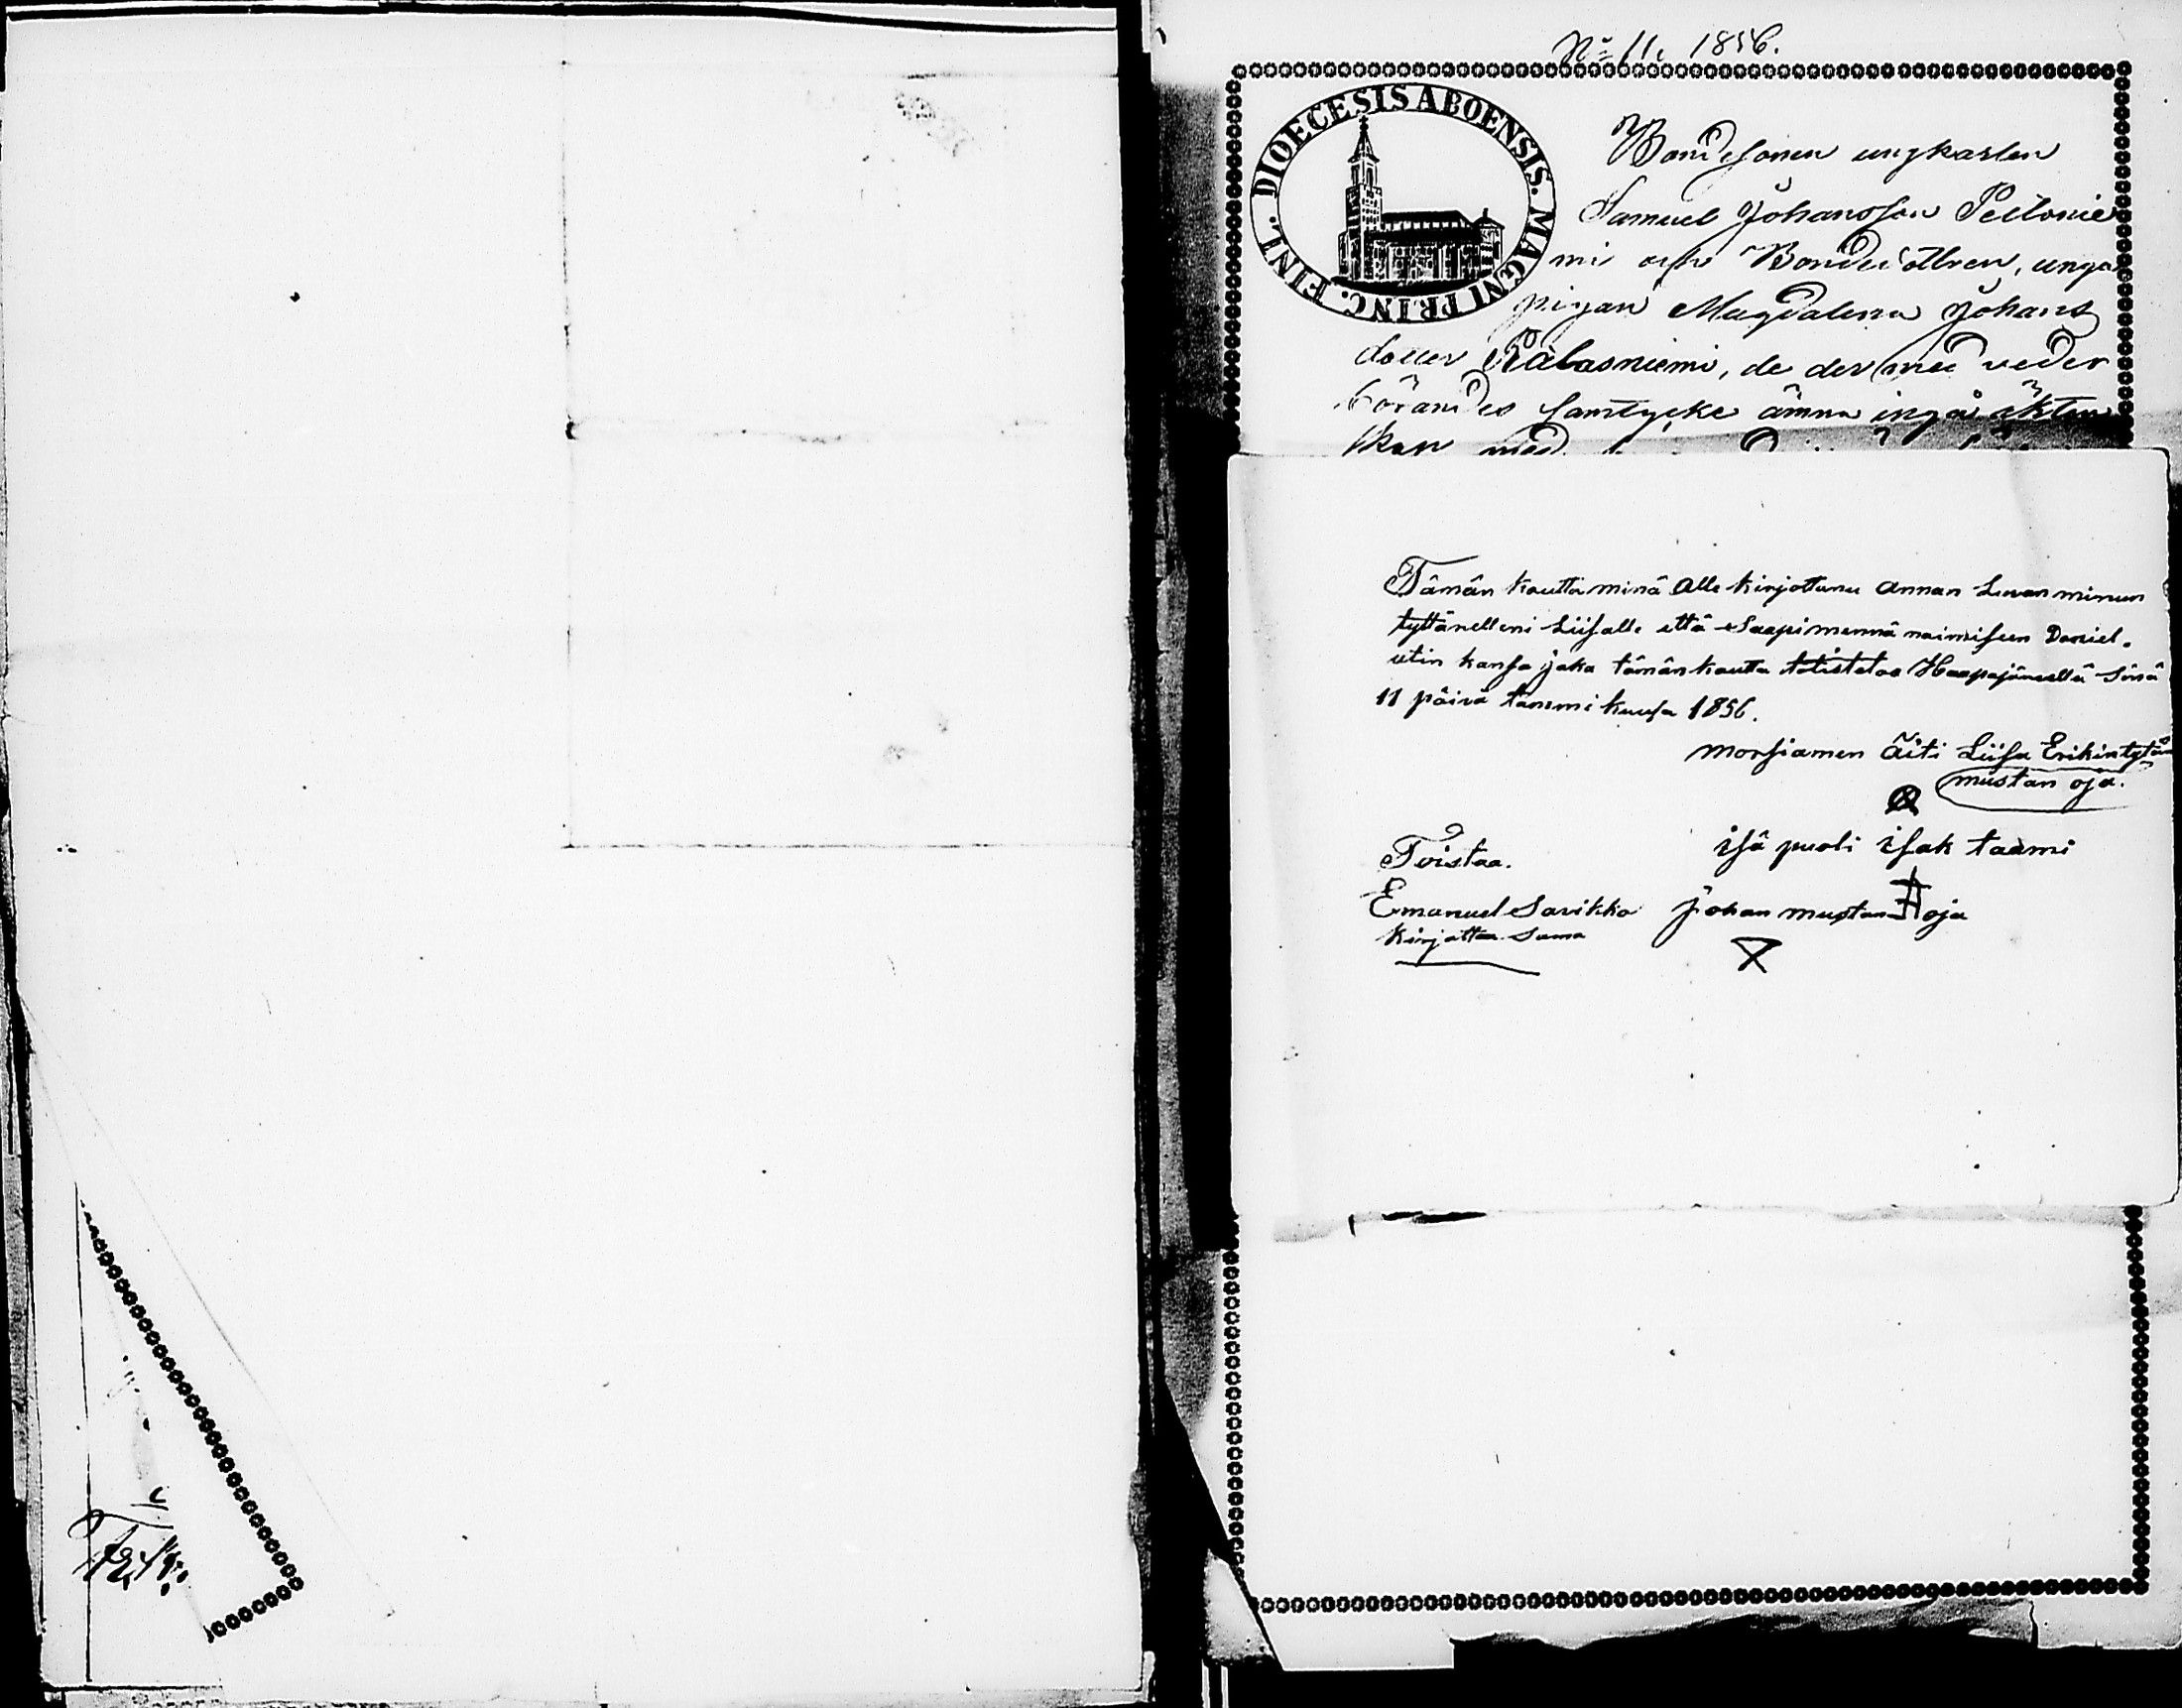 No 11. 1856.
DIOECESIS ABOENSIS. MAGNI PRINC. FINL.
Bondesonen ungkarlen
Samuel Johansson Peltonie
mi och Bondedottren, unga
pigan Magdalena Johans
dotter Kalasniemi, de der med veder
börandes samtycke ämna ingå äkten
skap med
Tämän kautta minä alle kirjottanu annan Luvan minun
tyttärelleni Liisalle että Saapi mennä naimiseen Daniel
utin kansa joka tämän kautta totistetaa Haapajärvellä Sinä
11 päivä tammi kuusa 1856.
morsiamen äiti Liisa Erikintytär
mustan oja.
Toistaa.
isä puoli isak taami
Emanuel Savikko Johan mustan oja
kirjottaa Sama